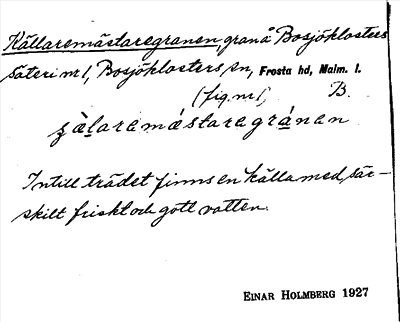 Källaremästaregranen, gran å Bosjöklosters
säteri nr 1, Bosjöklosters sn, Frosta hd, Malm. l.
(fig. nr 1, B.
ʒä̀laremástaregránen
Intill trädet finns en källa med sär-
skilt friskt och gott vatten.
EINAR HOLMBERG 1927